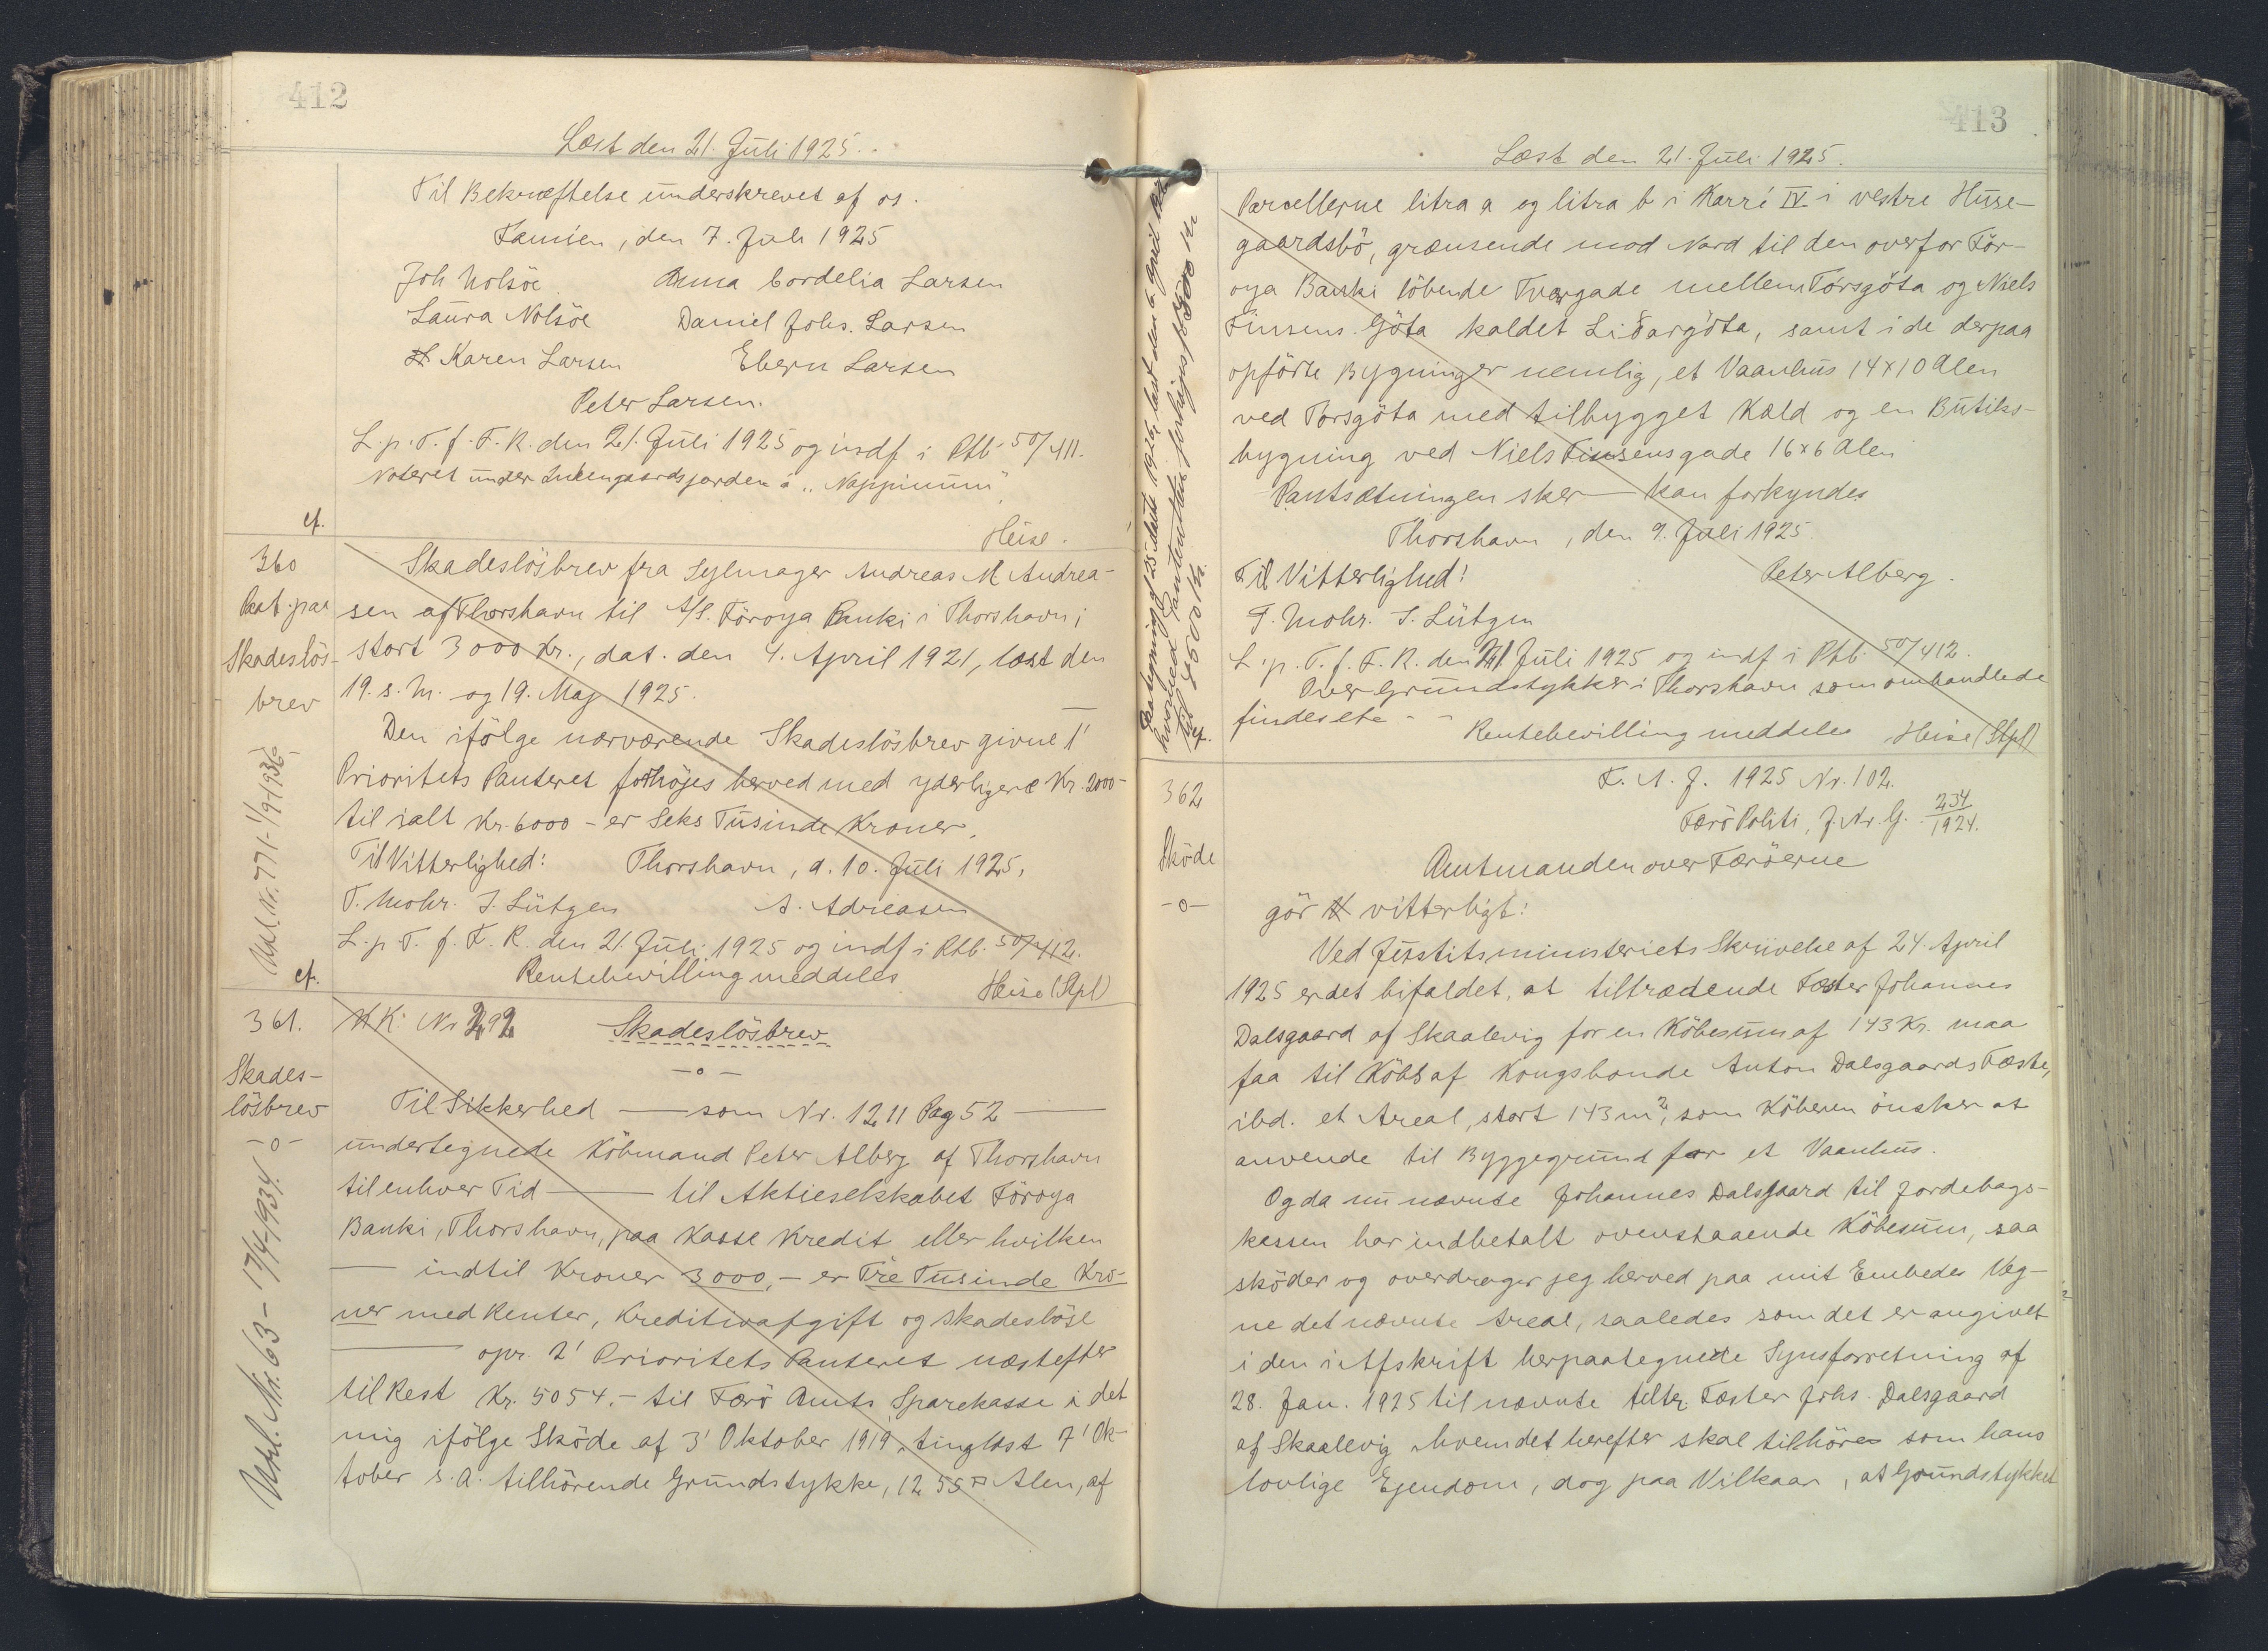 412
Læst den 21. Juli 1925.
Til Bekræftelse underskrevet af os.
Famien, den 7. Juli 1925
Joh Nolsöe Anna Cordelia Larsen
Laura Nolsöe Daniel Johs. Larsen
Karen Larsen Ebern Larsen
Peter Larsen.
L. p. T. f. F. R. den 21. Juli 1925 og indf. i Ptb. 50/411.
Noteret under
cf.
Heise.
360
Paat. paa
Skadeslös-
brev
Skadeslösbrev fra Sylmager Andreas M Andrea-
sen af Thorshavn til A/S. Föroya Banki i Thorshavn,
stort 3000 Kr., dat. den 4. April 1921, læst den
19. s. M. og 19. Maj 1925.
Den ifölge nærværende Skadeslösbrev givne 1'
Prioritets Panteret forhöjes herved med yderligere Kr. 2000-
til ialt Kr. 6000 - er Seks Tusinde Kroner.
Til Vitterlighed: Thorshavn, d. 10. Juli 1925.
T. Mohr. J. Lützen A. Adreasen
L. p. T. f. F. R. den 21. Juli 1925 og indf. i Ptb. 50/412.
Rentebevilling meddeles
Heise (Stpl)
Udsl. Nr. 771 - 1/9-1936
cf.
361.
Skades-
lösbrev
-o-
K K: Nr 292 Skadeslösbrev
-o-
Til Sikkerhed — som Nr. 1211 Pag 52 —
undertegnede Köbmand Peter Alberg af Thorshavn
til enhver Tid — til Aktieselskabet Föroya
Banki, Thorshavn, paa Kasse Kredit eller hvilken
— indtil Kroner 3000,- er Tre Tusinde Kro-
ner med Renter, Kreditivafgift og skadeslöse
— opr. 2' Prioritets Panteret næstefter
til Rest Kr. 5054.- til Færö Amts Sparekasse i det
mig ifölge Sköde af 3' Oktober 1919, tinglæst 7' Ok-
tober s. A. tilhörende Grundstykke, 1255 □ Alen, af
Udsl. Nr. 63 - 17/4-1934.
413
Læst den 21. Juli 1925.
Parcellerne litra a og litra b i Karré IV i vestre Huse-
gaardsbö, grænsende mod Nord til den overfor För-
oya Banki löbende Tværgade mellem Torsgöta og Niels
Finsens Göta kaldet Lidargöta, samt i de derpaa
opförte Bygninger nemlig, et Vaanhus 14x10 Alen
ved Torsgöta med tilbygget Kæld og en Butiks-
bygning ved Niels Finsensgade 16x6 Alen
Pantsætningen sker — kan forkyndes
Thorshavn, den 9. Juli 1925.
Til Vitterlighed: Peter Alberg.
T. Mohr. J. Lützen
L. p. T. f. F. R. den 21 Juli 1925 og indf. i Ptb. 50/412.
Over Grundstykker i Thorshavn som omhandlede
findes ete - -
Rentebevilling meddeles Heise (Stpl)
Paategning af 25 1926, læst den 6. April 1926
hvorved Panteretten forhöjes
til 4500 Kr.
cf.
362
Sköde
-o-
F. A. J. 1925 Nr. 102.
Færö Politi, J. Nr. G. 234/1924.
Amtmanden over Færöerne
gör vitterligt:
Ved Justitsministeriets Skrivelse af 24. April
1925 er det bifaldet, at tiltrædende Fæster Johannes
Dalsgaard af Skaalevig for en Köbesum af 143 Kr. maa
faa til Köbs af Kongsbonde Anton Dalsgaards Fæste,
ibd. et Areal, stort 143 m², som Köberen önsker at
anvende til Byggegrund for et Vaanhus.
Og da nu nævnte Johannes Dalsgaard til Jordebogs-
kassen har indbetalt ovenstaaende Köbesum, saa
sköder og overdrager jeg herved paa mit Embedes Veg-
ne det nævnte Areal, saaledes som det er angivet
i den i Afskrift herpaategnede Synsforretning af
28. Jan. 1925 til nævnte tiltr. Fæster Johs. Dalsgaard
af Skaalevig hvem det herefter skal tilhöre som hans
lovlige Ejendom, dog paa Vilkaar, at Grundstykket